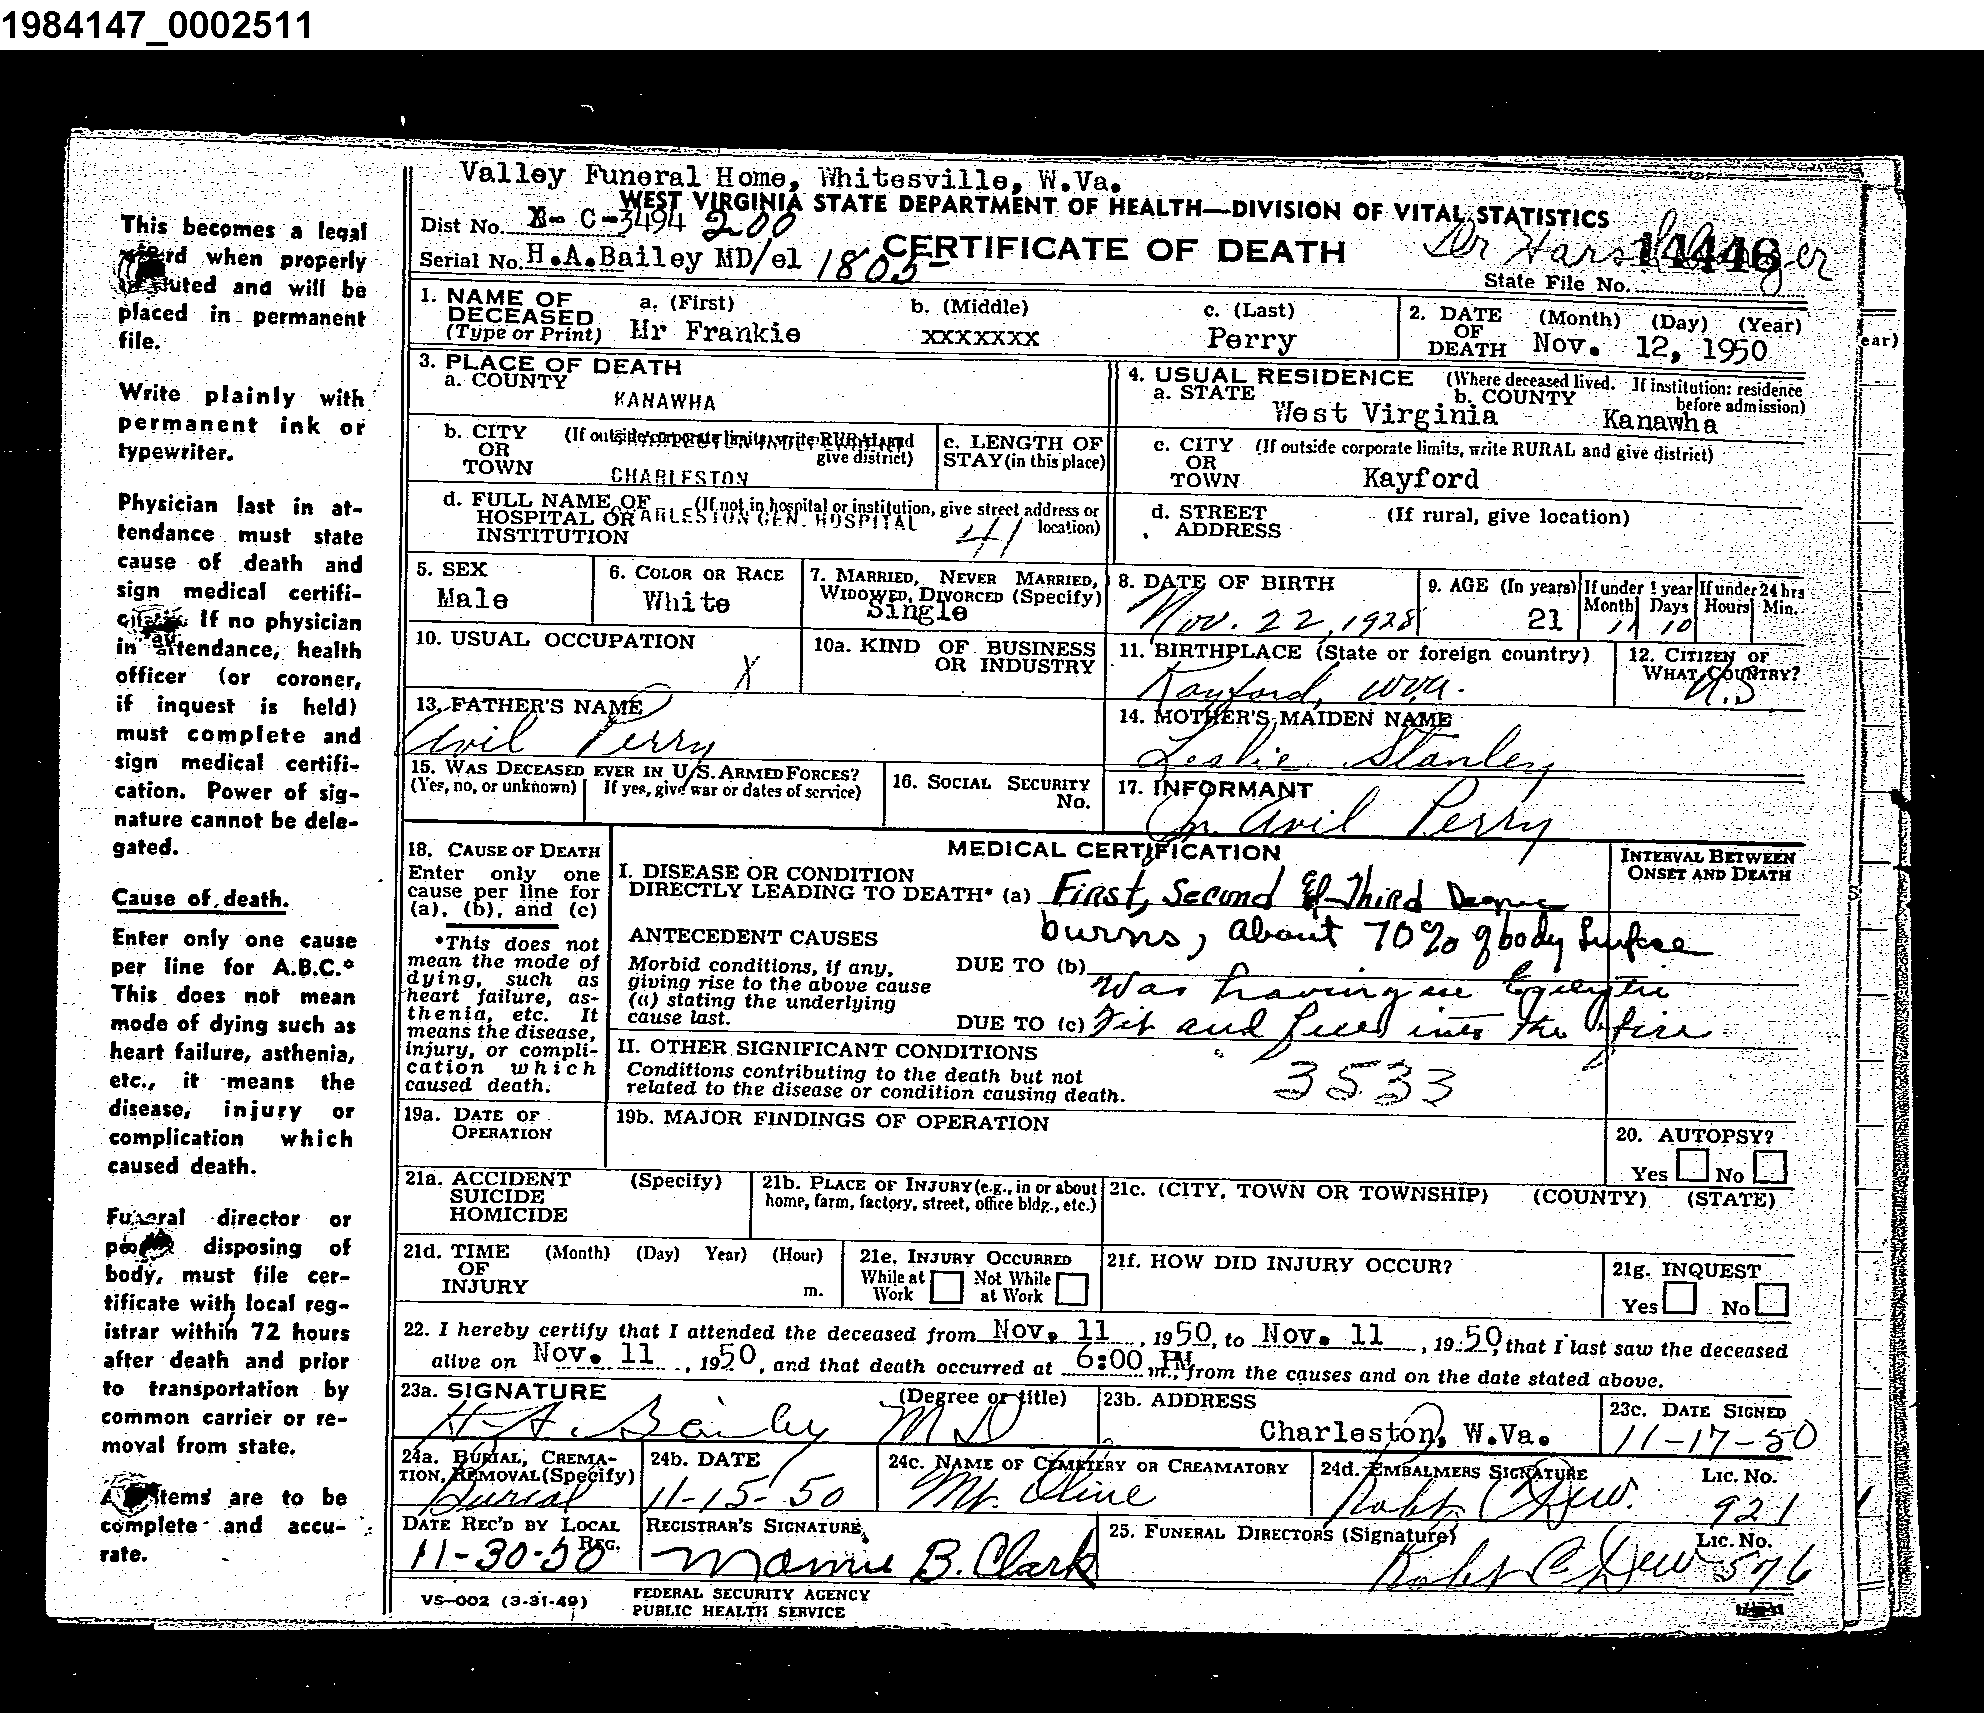 1984147_0002511
Valley Funeral Home, Whitesville, W.Va.
WEST VIRGINIA STATE DEPARTMENT OF HEALTH—DIVISION OF VITAL STATISTICS
Dist No. X- C-3494 200
CERTIFICATE OF DEATH
Serial No. H.A.Bailey MD/el 1805
14446
State File No.
1. NAME OF DECEASED (Type or Print)
a. (First) Mr Frankie
b. (Middle) xxxxxxx
c. (Last) Perry
2. DATE OF DEATH (Month) (Day) (Year) Nov. 12, 1950
3. PLACE OF DEATH
a. COUNTY KANAWHA
b. CITY OR TOWN (If outside corporate limits, write RURAL and give district) CHARLESTON
c. LENGTH OF STAY (in this place)
d. FULL NAME OF HOSPITAL OR INSTITUTION (If not in hospital or institution, give street address or location) ARLESTON GEN. HOSPITAL 41
4. USUAL RESIDENCE (Where deceased lived. If institution: residence before admission)
a. STATE West Virginia
b. COUNTY Kanawha
c. CITY OR TOWN (If outside corporate limits, write RURAL and give district) Kayford
d. STREET ADDRESS (If rural, give location)
5. SEX Male
6. COLOR OR RACE White
7. MARRIED, NEVER MARRIED, WIDOWED, DIVORCED (Specify) Single
8. DATE OF BIRTH Nov. 22, 1928
9. AGE (In years) 21
If under 1 year Month Days 11 10
If under 24 hrs Hours Min.
10. USUAL OCCUPATION X
10a. KIND OF BUSINESS OR INDUSTRY
11. BIRTHPLACE (State or foreign country) Kayford, W.Va.
12. CITIZEN OF WHAT COUNTRY? U.S
13. FATHER'S NAME Avil Perry
14. MOTHER'S MAIDEN NAME Leslie Stanley
15. WAS DECEASED EVER IN U.S. ARMED FORCES? (Yes, no, or unknown) If yes, give war or dates of service)
16. SOCIAL SECURITY No.
17. INFORMANT Avil Perry
18. CAUSE OF DEATH
Enter only one cause per line for (a), (b), and (c)
*This does not mean the mode of dying, such as heart failure, asthenia, etc. It means the disease, injury, or complication which caused death.
MEDICAL CERTIFICATION
INTERVAL BETWEEN ONSET AND DEATH
I. DISEASE OR CONDITION DIRECTLY LEADING TO DEATH* (a) First, Second & Third Degree
burns, about 70% of body Surface
ANTECEDENT CAUSES
Morbid conditions, if any, giving rise to the above cause (a) stating the underlying cause last.
DUE TO (b) Was having an Epileptic
DUE TO (c) Fit and fell into the fire
II. OTHER SIGNIFICANT CONDITIONS
Conditions contributing to the death but not related to the disease or condition causing death.
3533
19a. DATE OF OPERATION
19b. MAJOR FINDINGS OF OPERATION
20. AUTOPSY? Yes No
21a. ACCIDENT SUICIDE HOMICIDE (Specify)
21b. PLACE OF INJURY (e.g., in or about home, farm, factory, street, office bldg., etc.)
21c. (CITY, TOWN OR TOWNSHIP) (COUNTY) (STATE)
21d. TIME OF INJURY (Month) (Day) Year) (Hour) m.
21e. INJURY OCCURRED While at Work Not While at Work
21f. HOW DID INJURY OCCUR?
21g. INQUEST Yes No
22. I hereby certify that I attended the deceased from Nov. 11, 1950, to Nov. 11, 1950, that I last saw the deceased
alive on Nov. 11, 1950, and that death occurred at 6:00 PM m., from the causes and on the date stated above.
23a. SIGNATURE (Degree or title) H. A. Bailey MD
23b. ADDRESS Charleston, W.Va.
23c. DATE SIGNED 11-17-50
24a. BURIAL, CREMATION, REMOVAL (Specify) Burial
24b. DATE 11-15-50
24c. NAME OF CEMETERY OR CREAMATORY Mt. Olive
24d. EMBALMERS SIGNATURE Robt C Dew. Lic. No. 921
DATE REC'D BY LOCAL REG. 11-30-50
REGISTRAR'S SIGNATURE Mamie B. Clark
25. FUNERAL DIRECTORS (Signature) Robt C. Dew Lic. No. 576
VS-002 (3-31-49)
FEDERAL SECURITY AGENCY
PUBLIC HEALTH SERVICE
This becomes a legal
when properly
and will be
placed in permanent
file.
Write plainly with
permanent ink or
typewriter.
Physician last in at-
tendance must state
cause of death and
sign medical certifi-
If no physician
in attendance, health
officer (or coroner,
if inquest is held)
must complete and
sign medical certifi-
cation. Power of sig-
nature cannot be dele-
gated.
Cause of death.
Enter only one cause
per line for A.B.C.*
This does not mean
mode of dying such as
heart failure, asthenia,
etc., it means the
disease, injury or
complication which
caused death.
Funeral director or
disposing of
body, must file cer-
tificate with local reg-
istrar within 72 hours
after death and prior
to transportation by
common carrier or re-
moval from state.
items are to be
complete and accu-
rate.
ear)